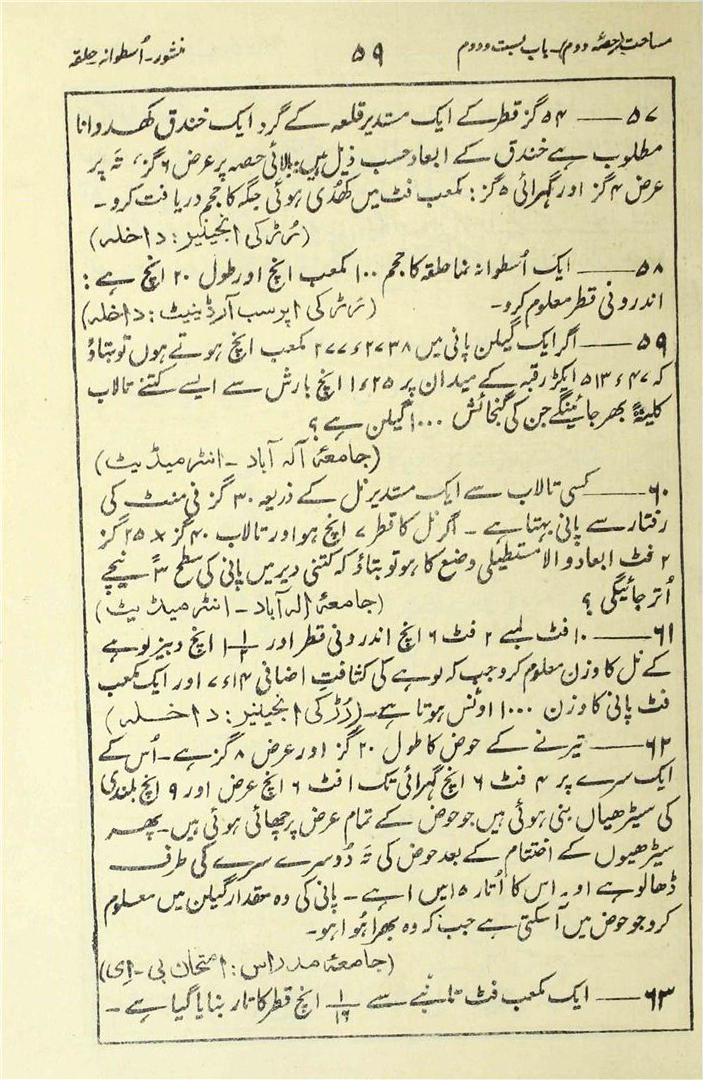 مساحت (حصّہ دوم)۔ باب بست و دوم
۵۹
منشور۔ اُسطوانہ۔ حلقہ
۵۷ــــ ۵۴ گز قطر کے ایک مستدیر قلعہ کے گرد ایک خندق کھدوانا
مطلوب ہے خندق کے ابعاد حسب ذیل ہیں: بالائی حصہ پر عرض ۶ گز، تَہ پر
عرض ۴ گز اور گہرائی ۵ گز: مکعب فٹ میں کھُدی ہوئی جگہ کا حجم دریافت کرو۔
(رُڑکی انجینیر: داخلہ)
۵۸ــــ ایک اُسطوانہ نما حلقہ کا حجم ۱۰۰ مکعب انچ اور طول ۲۰ انچ ہے:
اندرونی قطر معلوم کرو۔ (رڑکی اپر سب آرڈینیٹ: داخلہ)
۵۹ــــ اگر ایک گیلن پانی میں ۲۷۷ء۲۷۳۸ مکعب انچ ہوتے ہوں تو بتاؤ
کہ ۵۱۳ء۴۷ ایکڑ رقبہ کے میدان پر ۱ء۲۵ انچ بارش سے ایسے کتنے تالاب
کلیتہً بھر جائینگے جن کی گنجائش ۱۰۰۰ گیلن ہے؟
(جامعۂ آلہ آباد ۔ انٹرمیڈیٹ)
۶۰ــــ کسی تالاب سے ایک مستدیر نل کے ذریعہ ۳۰ گز فی منٹ کی
رفتار سے پانی بہتا ہے۔ اگر نل کا قطر ۷ انچ ہو اور تالاب ۴۰ گز × ۲۵ گز
۲ فٹ ابعاد والا مستطیلی وضع کا ہو تو بتاؤ کہ کتنی دیر میں پانی کی سطح ۳ً نیچے
اُتر جائیگی؟ (جامعۂ الہ آباد ۔ انٹرمیڈیٹ)
۶۱ــــ ۱۰ فٹ لمبے ۲ فٹ ۶ انچ اندرونی قطر اور ۱ ۱/۲ انچ دبیز لوہے
کے نل کا وزن معلوم کرو جب کہ لوہے کی کثافتِ اضافی ۷ء۱۴ اور ایک مکعب
فٹ پانی کا وزن ۱۰۰۰ اونس ہوتا ہے۔ (رُڑکی انجینیر: داخلہ)
۶۲ــــ تیرنے کے حوض کا طول ۲۰ گز اور عرض ۸ گز ہے۔ اُس کے
ایک سرے پر ۴ فٹ ۶ انچ گہرائی تک ۱ فٹ ۶ انچ عرض اور ۹ انچ بلندی
کی سیڑھیاں بنی ہوئی ہیں جو حوض کے تمام عرض پر چھائی ہوئی ہیں۔ پھر
سیڑھیوں کے اختتام کے بعد حوض کی تَہ دُوسرے سرے کی طرف
ڈھالو ہے اور اس کا اُتار ۱۵ میں ۱ ہے۔ پانی کی وہ مقدار گیلن میں معلوم
کرو جو حوض میں آسکتی ہے جب کہ وہ بھرا ہُوا ہو۔
(جامعۂ مدراس: امتحان بی۔ اِی)
۶۳ــــ ایک مکعب فٹ تانبے سے ۱/۱۶ انچ قطر کا تار بنایا گیا ہے۔